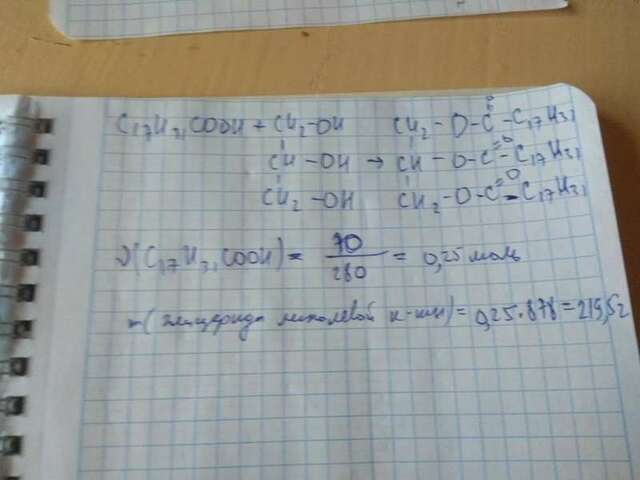 C₁₇H₃₁COOH + CH₂-OH CH₂-O-C(=O)-C₁₇H₃₁
CH-OH → CH-O-C=O-C₁₇H₃₁
CH₂-OH CH₂-O-C=O-C₁₇H₃₁
ν(C₁₇H₃₁COOH) = 70/280 = 0,25 моль
m(глицерида линолевой к-ты) = 0,25·878 = 219,5г